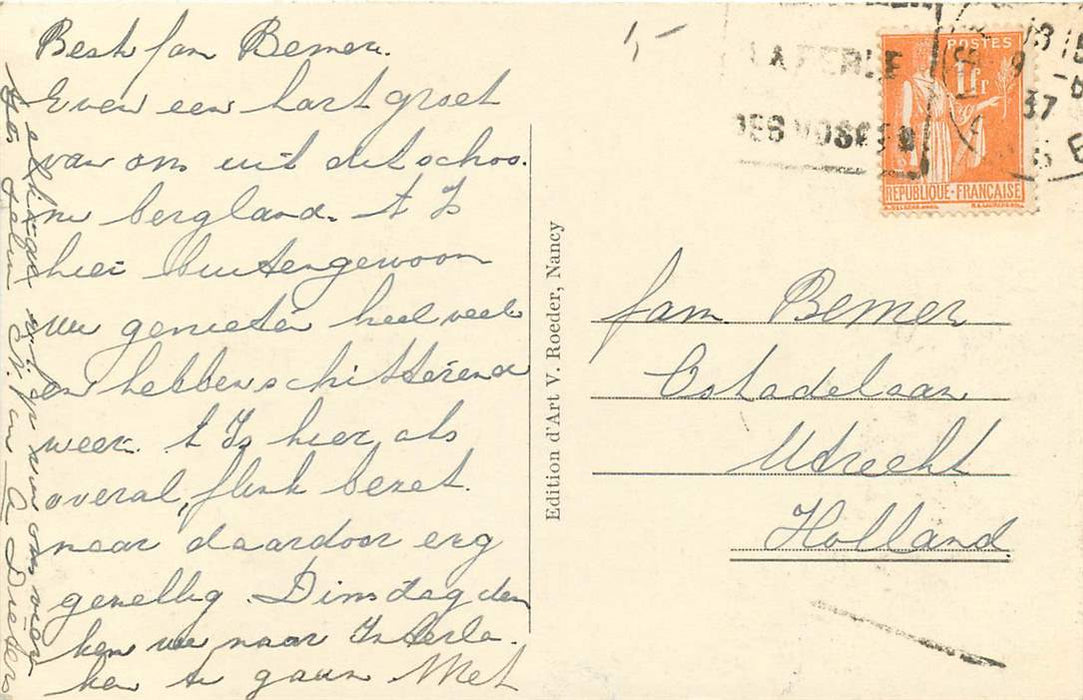 Beste fam Bemer.
Even een hart groet
van ons uit dit schoo.
ne bergland. t Is
hier buitengewoon
we genieten heel veel
en hebben schitterend
weer. t Is hier, als
overal, flink bezet.
maar daardoor erg
gezellig. Dinsdag den
ken we naar Interla.
ken te gaan Met
van ons vier
Edition d'Art V. Roeder, Nancy
LA PERLE
DES VOSGES
POSTES
1fr
REPUBLIQUE-FRANÇAISE
37
fam. Bemer
Ostadelaan
Utrecht
Holland